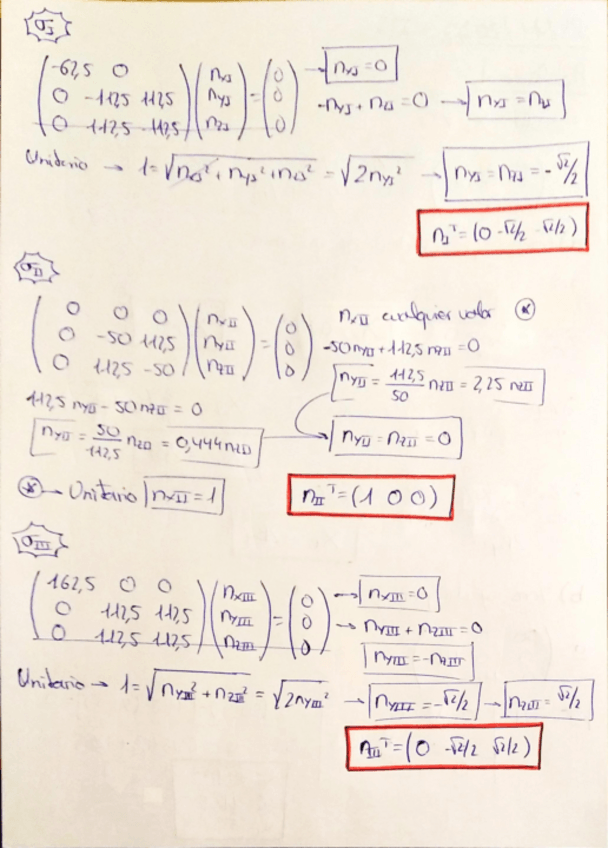 σI
-62,5 0
0 -112,5 112,5
0 112,5 -112,5
nxI
nyI
nzI
=
0
0
0
→ nxI = 0
-nyI + nzI = 0 → nyI = nzI
Unitario → 1 = √nxI² + nyI² + nzI² = √2nyI² → nyI = nzI = -√2/2
nIᵀ = (0 -√2/2 -√2/2)
σII
0 0 0
0 -50 112,5
0 112,5 -50
nxII
nyII
nzII
=
0
0
0
nxII cualquier valor (*)
-50nyII + 112,5 nzII = 0
nyII = 112,5/50 nzII = 2,25 nzII
112,5 nyII - 50nzII = 0
nyII = 50/112,5 nzII = 0,444nzII → nyII = nzII = 0
(*) → Unitario nxII = 1
nIIᵀ = (1 0 0)
σIII
162,5 0 0
0 112,5 112,5
0 112,5 112,5
nxIII
nyIII
nzIII
=
0
0
0
→ nxIII = 0
→ nyIII + nzIII = 0
nyIII = -nzIII
Unitario → 1 = √nyIII² + nzIII² = √2nyIII² → nyIII = -√2/2 → nzIII = √2/2
nIIIᵀ = (0 -√2/2 √2/2)